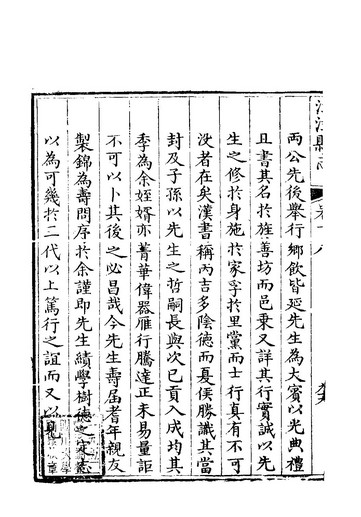 卷十八
兩公先後舉行鄉飲皆延先生為大賓以光典禮
且書其名於旌善坊而邑乗又詳其行實誠以先
生之修於身施於家孚於里黨而士行真有不可
没者在矣漢書稱丙吉多陰德而夏侯勝識其當
封及子孫以先生之哲嗣長與次已貢入成均其
季為余姪婿亦菁華偉器雁行騰達正未易量詎
不可以卜其後之必昌哉今先生壽届耆年親友
製錦為壽問序於余謹即先生績學樹德之
以為可幾於二代以上篤行之誼而又以見